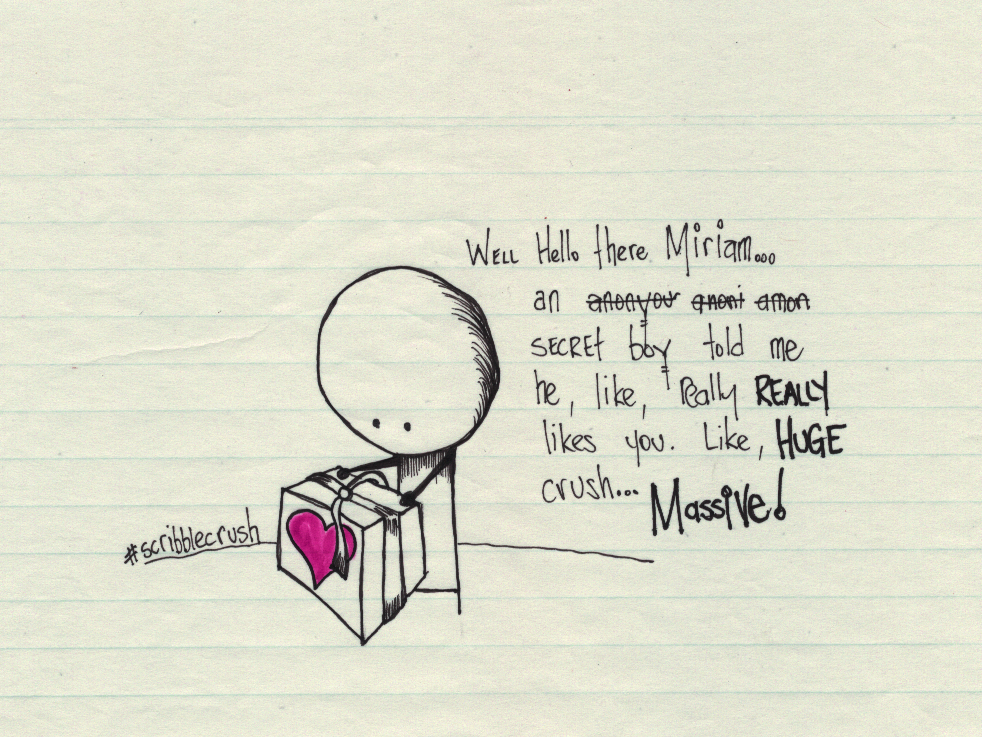 Well Hello there Miriam...
an anonyou anoni amon
SECREt boy told me
he, like, Really REALLY
likes you. Like, HUGE
crush... MassIVe!
#scribblecrush